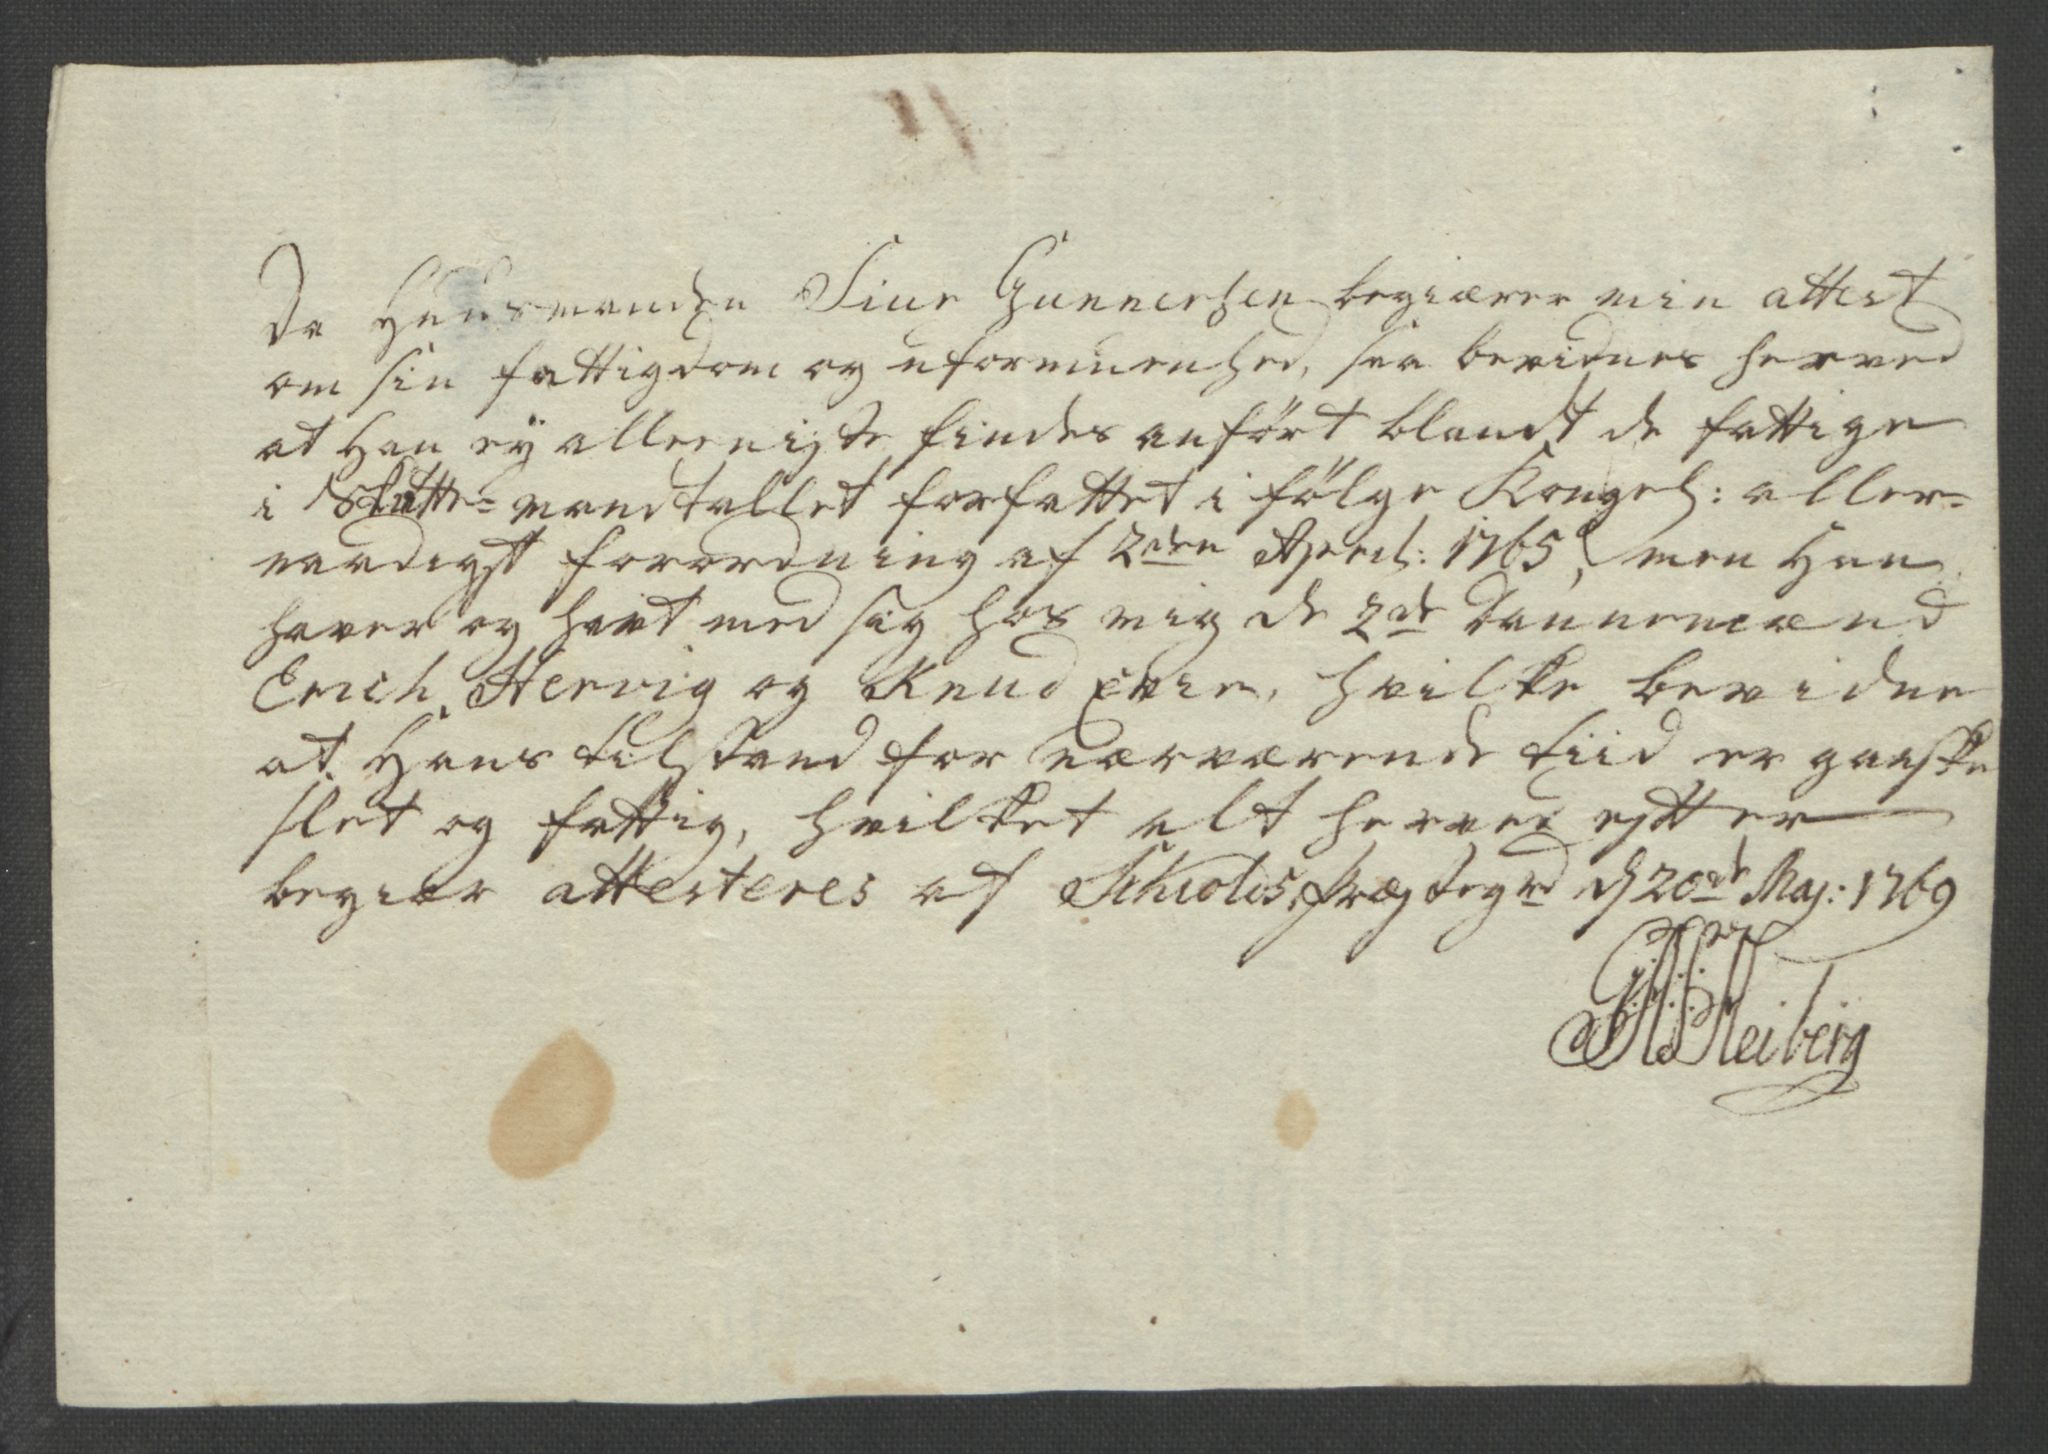 Da Huusmanden Siur Gunnersen begiærer min attest
om sin fattigdom og uformuenhed, saa bevidnes herved
at Han ey alleeniste findes anført blandt de fattige
i Skatte-mandtallet forfattet i følge Kongel: aller-
naadigst forordning af 2den April: 1765, men Han
haver og havt med sig hos mig de 2de dannemænd
Erich Hervig og Knud Evie, hvilke bevidne
at Hans tilstand for nærværende tiid er ganske
slet og fattig, hvilket alt herved efter
begiær attesteres af Schiolds Præstegrd d 20de Maj: 1769
Heiberg